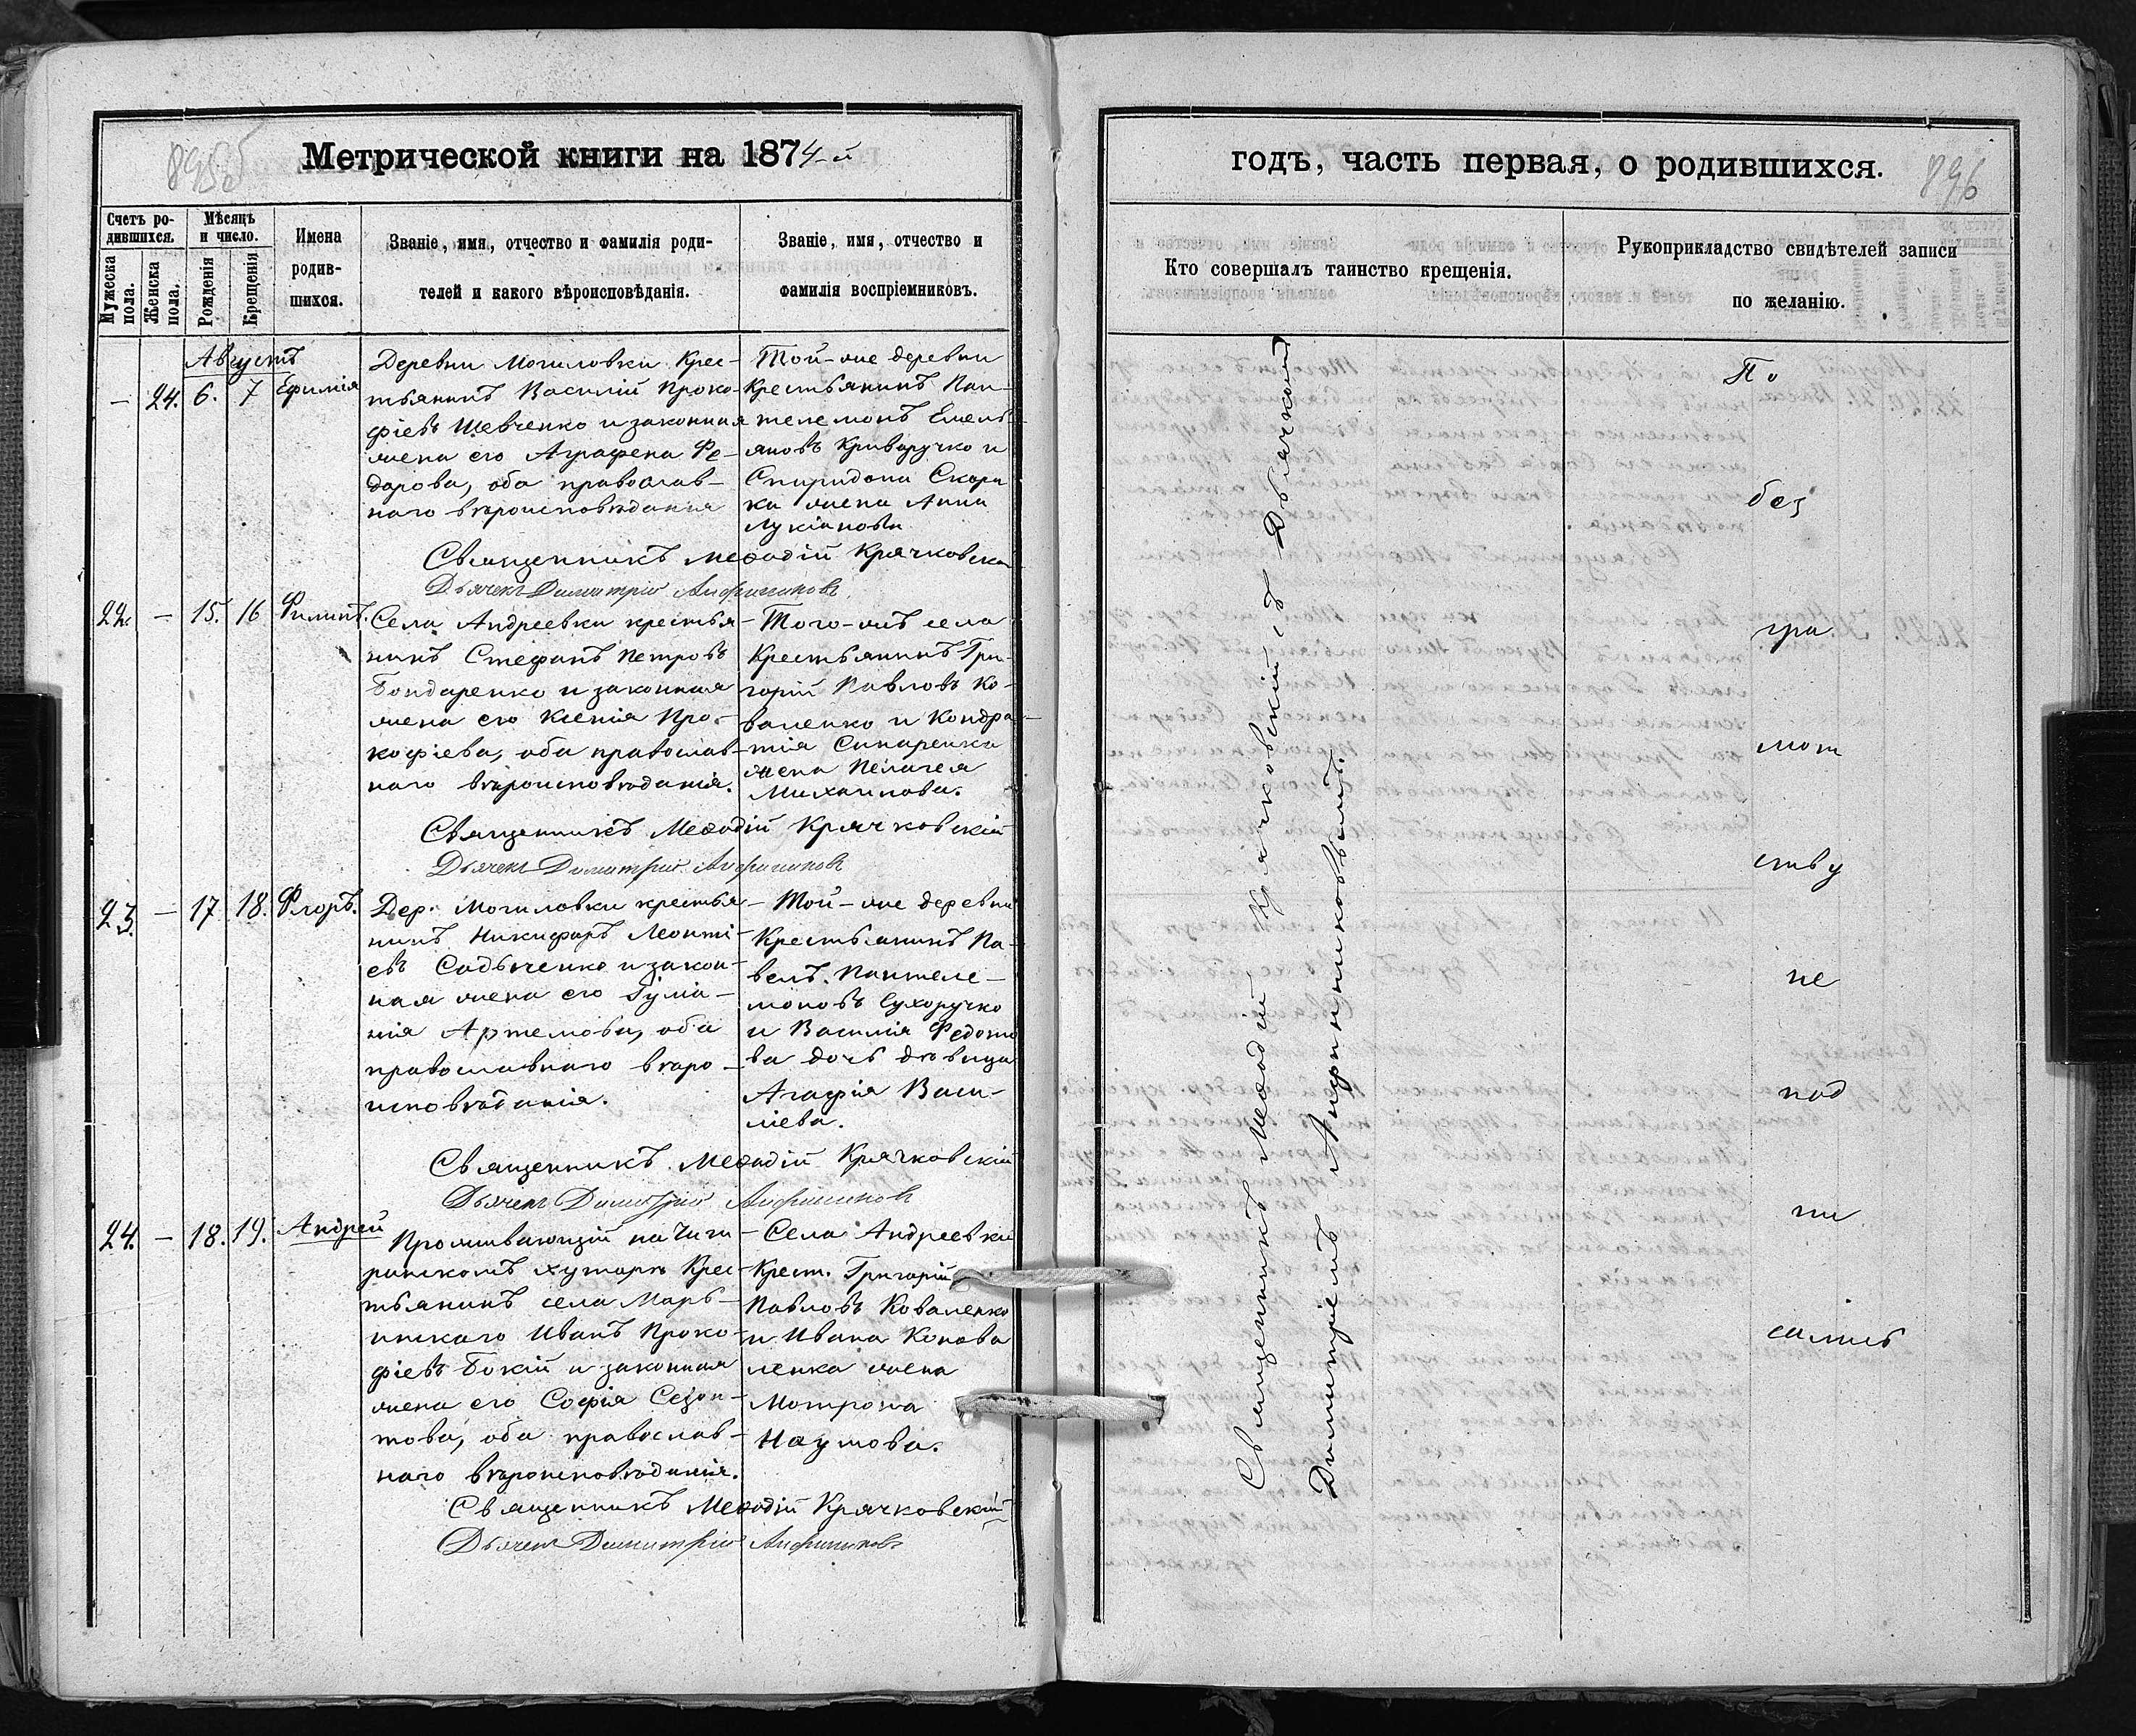 Метрической книги на 1874-й
895
Счетъ ро-
дившихся.
Мужеска
пола.
Женска
пола.
Мѣсяцъ
и число.
Рожденія
Крещенія
Имена
родив-
шихся.
Званіе, имя, отчество и фамилія роди-
телей и какого вѣроисповѣданія.
Званіе, имя, отчество и
фамилія воспріемниковъ.
Августъ
— 24. 6. 7 Ефимія
Деревни Могиловки Крес-
тьянинъ Василій Проко-
фіевъ Шевченко и законная
жена его Аграфена Фе-
дорова, оба православ-
наго вѣроисповѣданія
Той-же деревни
Крестьянинъ Пан-
телемонъ Емель-
яновъ Криворучко и
Спиридона Скори
ка жена Анна
Лукіанова
Священникъ Меѳодій Крячковскій
Дьячекъ Димитрій Анфиногеновъ
22. — 15. 16 Филипъ.
Села Андреевки крестья-
нинъ Стефанъ Петровъ
Бондаренко и законная
жена его Ксенія Про-
кофіева, оба православ-
наго вѣроисповѣданія.
Того-жъ села
Крестьянинъ Гри-
горій Павловъ Ко-
валенко и Кондра-
тія
жена Пелагея
Михаилова.
Священникъ Меѳодій Крячковскій
Дьячекъ Димитрій
23. — 17 18. Флоръ.
Дер. Могиловки крестья-
нинъ Никифоръ Леонті-
евъ и закон-
ная жена его Іулiа-
нія Артемова, оба
православнаго вѣро-
исповѣданія.
Той-же деревни
Крестьянинъ Па-
велъ Пантеле-
моновъ Сухоручко
и Василія Федото
ва дочь дѣвица
Агафія Васи-
ліева.
Священникъ Меѳодій Крячковскій
Дьячекъ Димитрій
24. — 18. 19. Андрей
Проживающій на Чиги
ринскомъ хуторѣ Крес-
тьянинъ села Марь-
инскаго Иванъ Проко-
фіевъ Бокій и законная
жена его Софія Сезон-
това, оба православ-
наго вѣроисповѣданія.
Села Андреевки
Крест. Григорій
Павловъ Коваленко
и Ивана Конова
ленка жена
Мотрона
Наумова.
Священникъ Меѳодій Крячковскій
Дьячекъ Димитрій
годъ, часть первая, о родившихся.
896
Кто совершалъ таинство крещенія.
Рукоприкладство свидѣтелей записи
по желанію.
Священникъ Меѳодій Крячковскій съ Дьячкомъ
Димитріемъ
По
без
гра
мот
ству
не
под
пи
сались